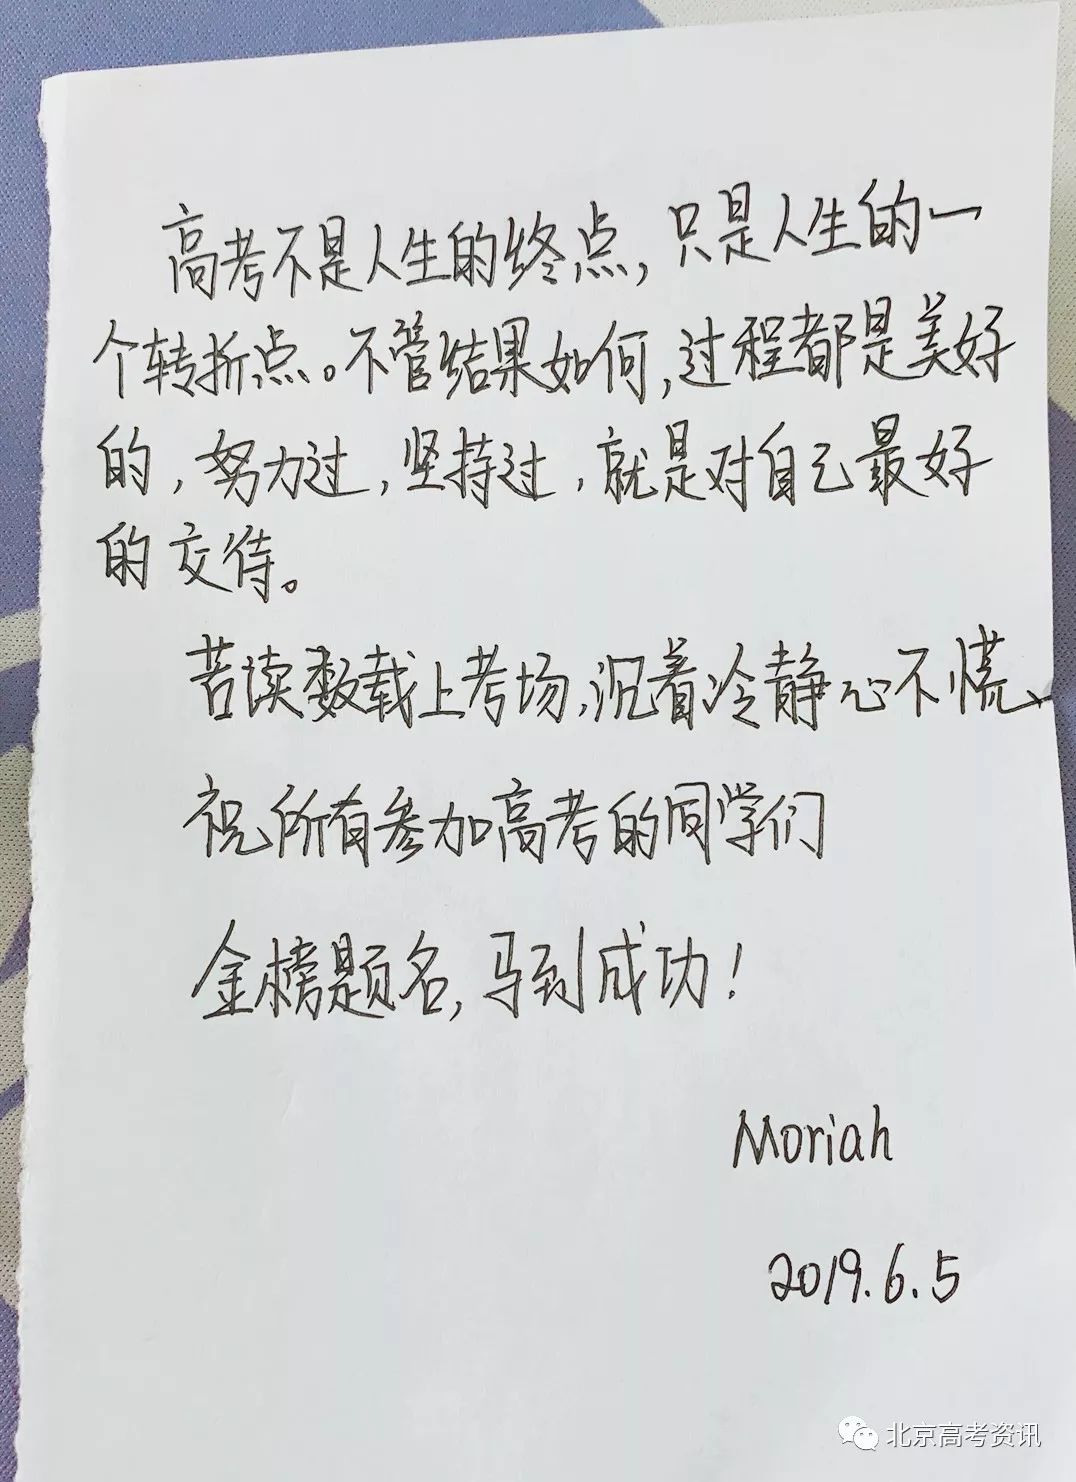 高考不是人生的终点，只是人生的一
个转折点。不管结果如何，过程都是美好
的，努力过，坚持过，就是对自己最好
的交待。
苦读数载上考场，沉着冷静心不慌、
祝所有参加高考的同学们
金榜题名，马到成功！
Moriah
2019.6.5
北京高考资讯